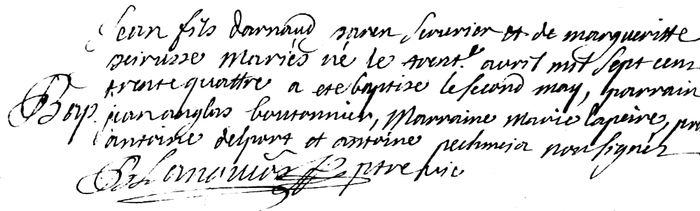 Jean fils darnaud saren serurier et de margueritte
peirusse Mariés né le trent.e avril mil sept cen
trente quattre a ete baptise le second may, parrain
Bap. jean anglas boutonnier, Marraine Marie lapeire, pnt
antoine delport et antoine pechmeia non signés
ptre vic